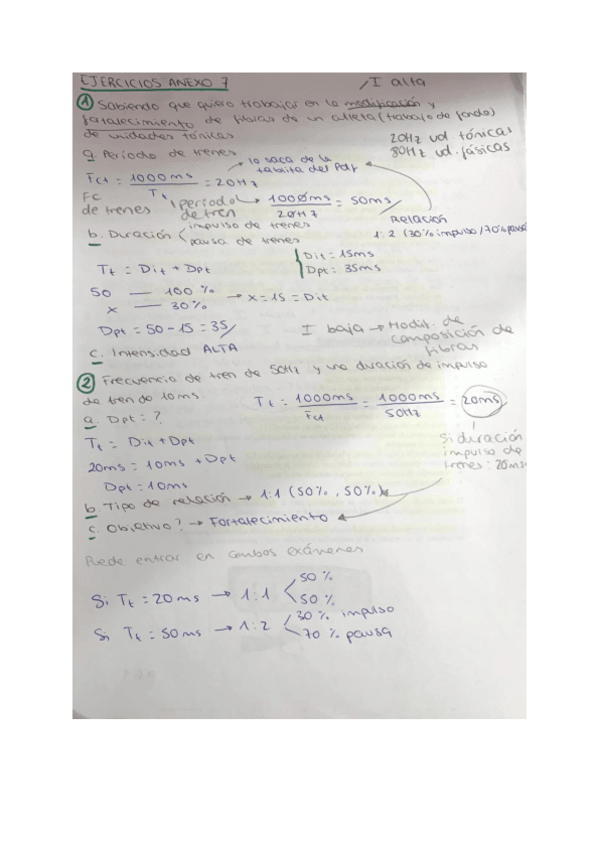 EJERCICIOS ANEXO 7
/I alta
① Sabiendo que quiero trabajar en la modificación y
fortalecimiento de fibras de un atleta (trabajo de fondo)
de unidades tónicas
20Hz ud. tónicas
80Hz ud. fásicas
a. Período de trenes
lo saca de la
tablita del Pdf
Fct = 1000ms / Tt = 20Hz
FC de trenes
período de tren
1000ms / 20Hz = 50ms
Relación
1:2 (30% impulso / 70% pausa
b. Duración
impulso de trenes
pausa de trenes
Tt = Dit + Dpt
Dit = 15ms
Dpt: 35ms
50 — 100%
x — 30%
→ x = 15 = Dit
Dpt = 50 - 15 = 35/
I baja → Modif. de
composición de
fibras
c. Intensidad ALTA
② Frecuencia de tren de 50Hz y una duración de impulso
de tren de 10ms
Tt = 1000ms / Fct = 1000ms / 50Hz = 20ms
a. Dpt = ?
Tt = Dit + Dpt
20ms = 10ms + Dpt
Dpt = 10ms
Si duración
impulso de
trenes: 20ms
b. Tipo de relación → 1:1 (50%, 50%)
c. Objetivo? → Fortalecimiento
Puede entrar en ambos exámenes
Si Tt = 20ms → 1:1
50%
50%
Si Tt = 50ms → 1:2
30% impulso
70% pausa